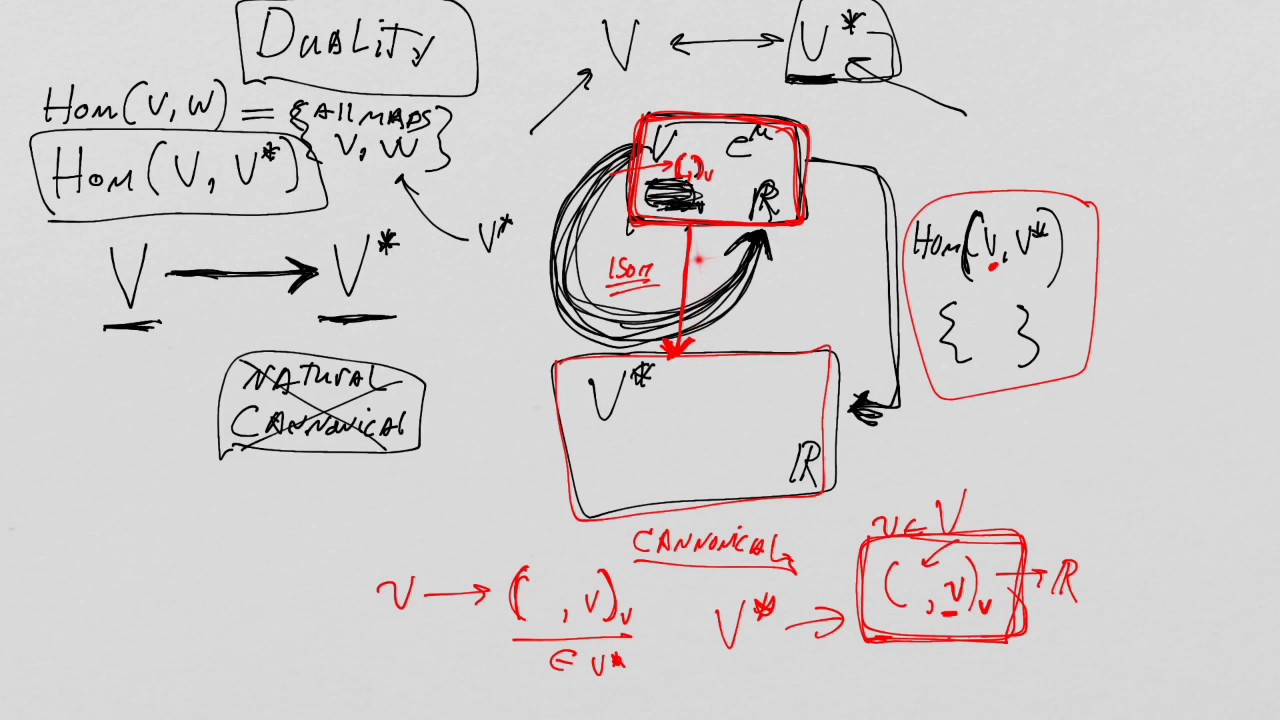 DUALITY
V ↔ V*
HOM(V, W) = { All MAPS
V, W }
HOM(V, V*)
V*
V → V*
NATURAL
CANNONICAL
V e^μ
( , )_V
ℝ
ISOM
V*
ℝ
HOM(V, V*)
{ }
CANNONICAL
v ∈ V
v → ( , v)_V
∈ V*
V* → ( , v)_V → ℝ